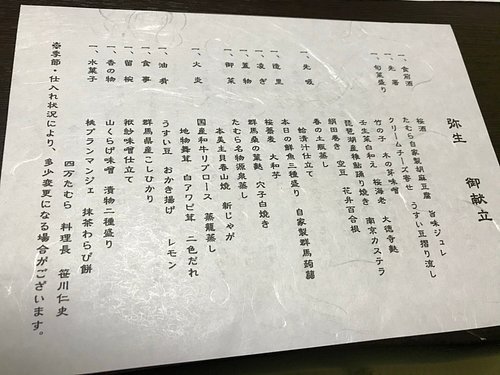 弥生　御献立
一、食前酒　桜酒
一、先　たむら自家製胡麻豆腐　旨味ジュレ
クリームチーズ寄せ　うすい豆摺り流し
一、旬菜盛り　竹の子　木の芽味噌　大徳寺麩
壬生菜白和え　桜海老　南京カステラ
琵琶湖産稚鮎踊り焼き
絹田巻き　空豆　花弁百合根
一、先吸　春の土瓶蒸し
蛤清汁仕立て
一、造里　本日の鮮魚三種盛り　自家製群馬蒟蒻
一、凌ぎ　桜蕎麦　大和芋
一、蓋物　群馬桑の葉麩　穴子白焼き
一、御菜　たむら名物温泉蒸し
本美主貝春山焼　新じゃが
一、大炎　国産和牛リブロース　蒸籠蒸し
地物舞茸　白アワビ茸　二色だれ
一、油肴　うすい豆　おかき揚げ　レモン
一、食事　群馬県産こしひかり
一、留椀　袱紗味噌仕立て
一、香の物　山くらげ味噌　漬物二種盛り
一、水菓子　桃ブランマンジェ　抹茶わらび餅
四万たむら　料理長　笹川仁史
※季節・仕入れ状況により、多少変更になる場合がございます。